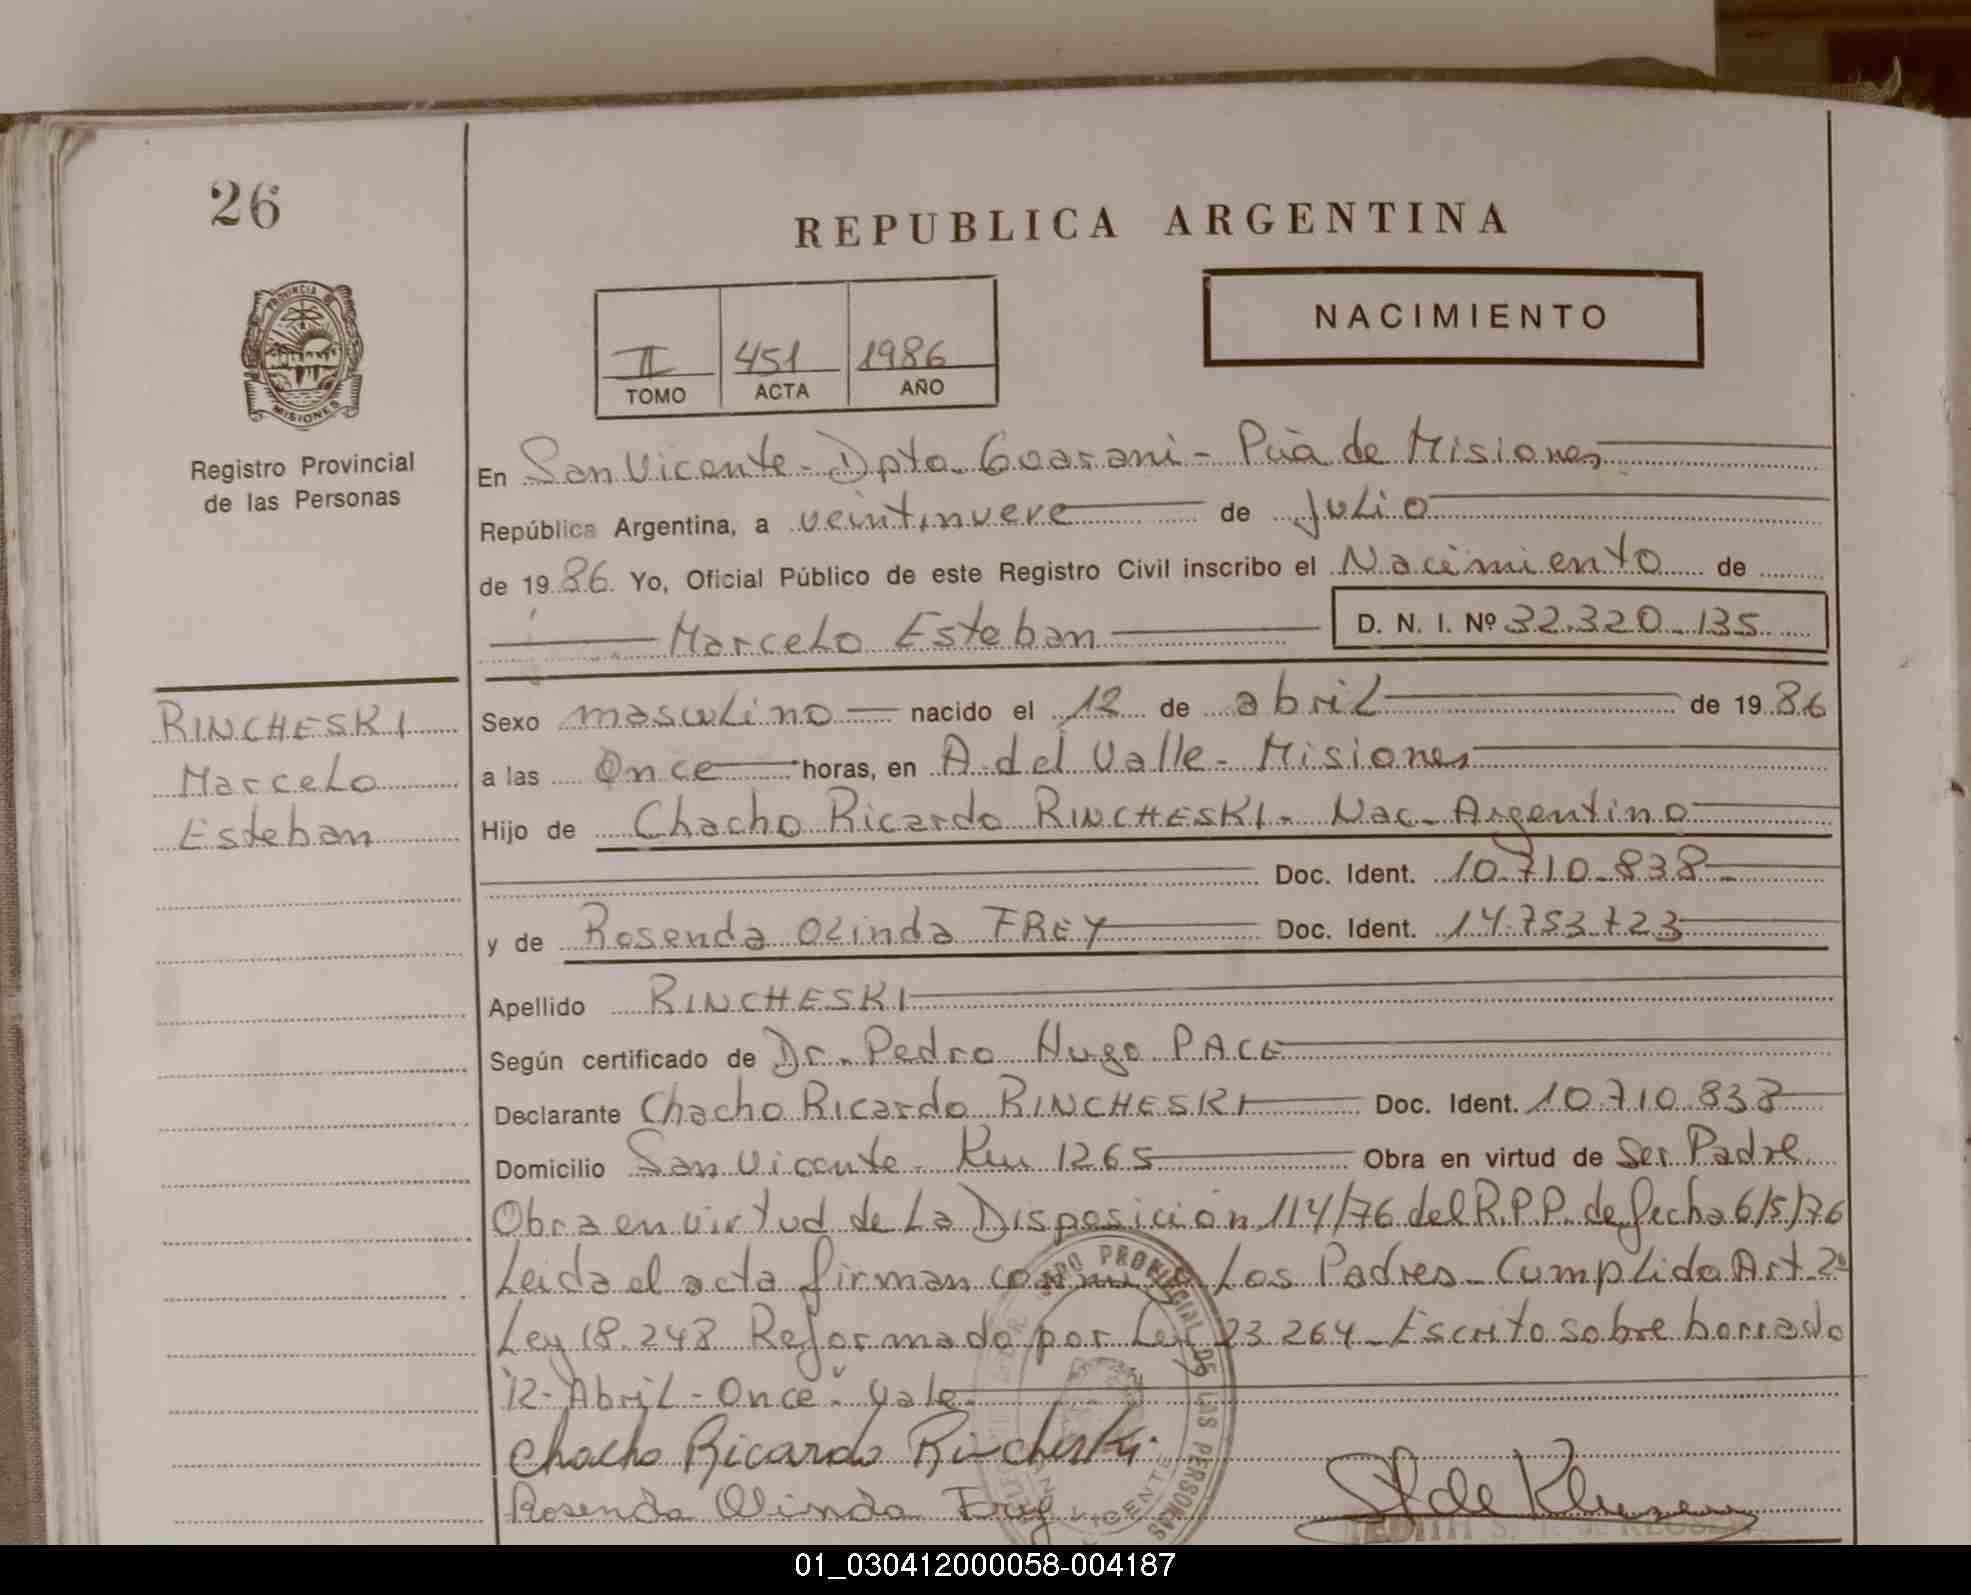 26
REPUBLICA ARGENTINA
PROVINCIA DE
MISIONES
Registro Provincial
de las Personas
II 451 1986
TOMO ACTA AÑO
NACIMIENTO
En San Vicente - Dpto. Guarani - Pcia de Misiones
República Argentina, a veintinueve de Julio
de 1986 Yo, Oficial Público de este Registro Civil inscribo el Nacimiento de
Marcelo Esteban D. N. I. Nº 32.320.135
RINCHESKI
Marcelo
Esteban
Sexo masculino nacido el 12 de abril de 1986
a las Once horas, en A. del Valle - Misiones
Hijo de Chacho Ricardo RINCHESKI - Nac. Argentino
Doc. Ident. 10.710.838
y de Rosenda Olinda FREY Doc. Ident. 14.753.723
Apellido RINCHESKI
Según certificado de Dr. Pedro Hugo PACE
Declarante Chacho Ricardo RINCHESKI Doc. Ident. 10.710.838
Domicilio San Vicente - Km 1265 Obra en virtud de Ser Padre
Obra en virtud de La Disposición 114/76 del R.P.P. de fecha 6/5/76
Leida el acta firman conmigo Los Padres - Cumplido Art. 2º
Ley 18.248 Reformado por Ley 23.264 - Escrito sobre borrado
"12 - Abril - Once" Vale.
Chacho Ricardo Rincheski
Rosenda Olinda Frey
PROVINCIAL DE LAS PERSONAS
VICENTE
01_030412000058-004187